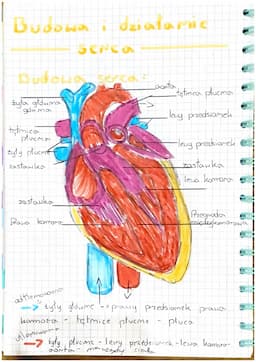 Budowa i działanie
serca
Budowa serca:
aorta
tętnica płucna
żyła główna
górna
lewy przedsionek
tętnica
płucna
żyły płucne
lewy przedsionek
zastawka
zastawka
lewa komora
zastawka
Prawa komora
Przegroda
żyły główne - prawy przedsionek prawa
komora - tętnice płucne - płuca
żyły płucne - lewy przedsionek - lewa komora
aorta - narządy ciała